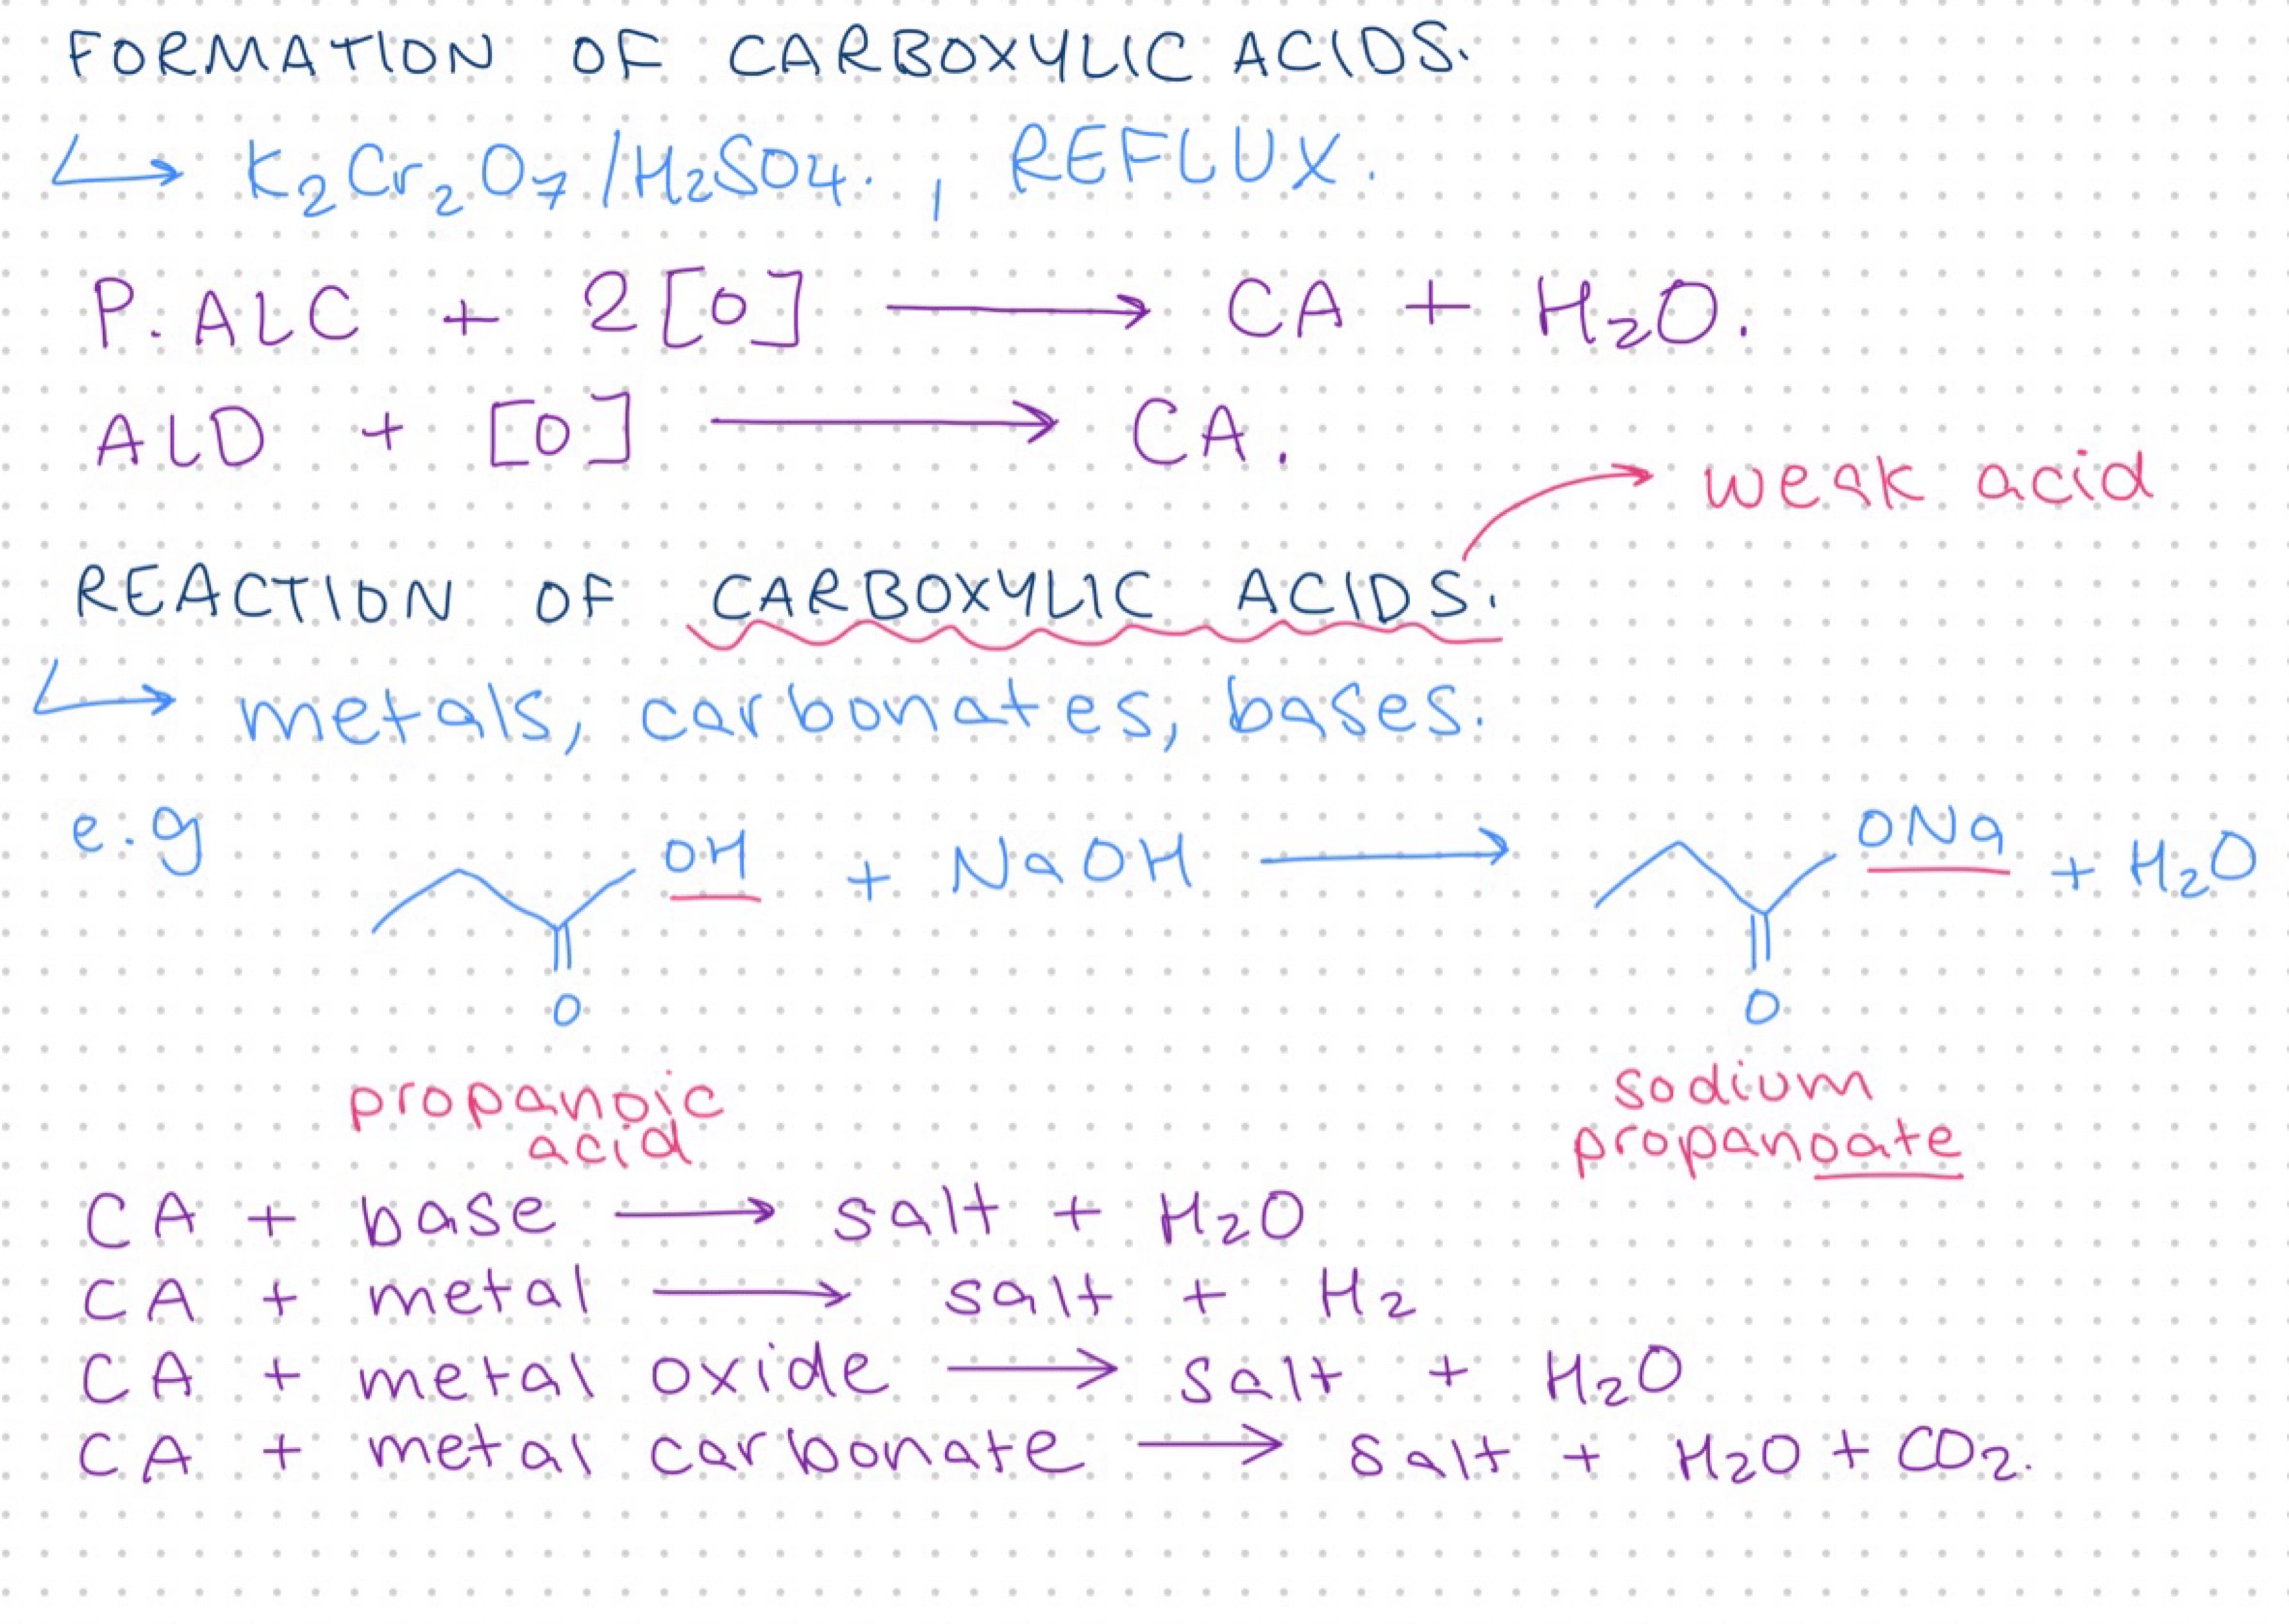 FORMATION OF CARBOXYLIC ACIDS.
↳ K₂Cr₂O₇/H₂SO₄. , REFLUX.
P. ALC + 2[O] → CA + H₂O.
ALD + [O] → CA.
weak acid
REACTION OF CARBOXYLIC ACIDS.
↳ metals, carbonates, bases.
e.g OH + NaOH → ONa + H₂O
O O
propanoic acid
sodium propanoate
CA + base → salt + H₂O
CA + metal → salt + H₂
CA + metal oxide → salt + H₂O
CA + metal carbonate → salt + H₂O + CO₂.